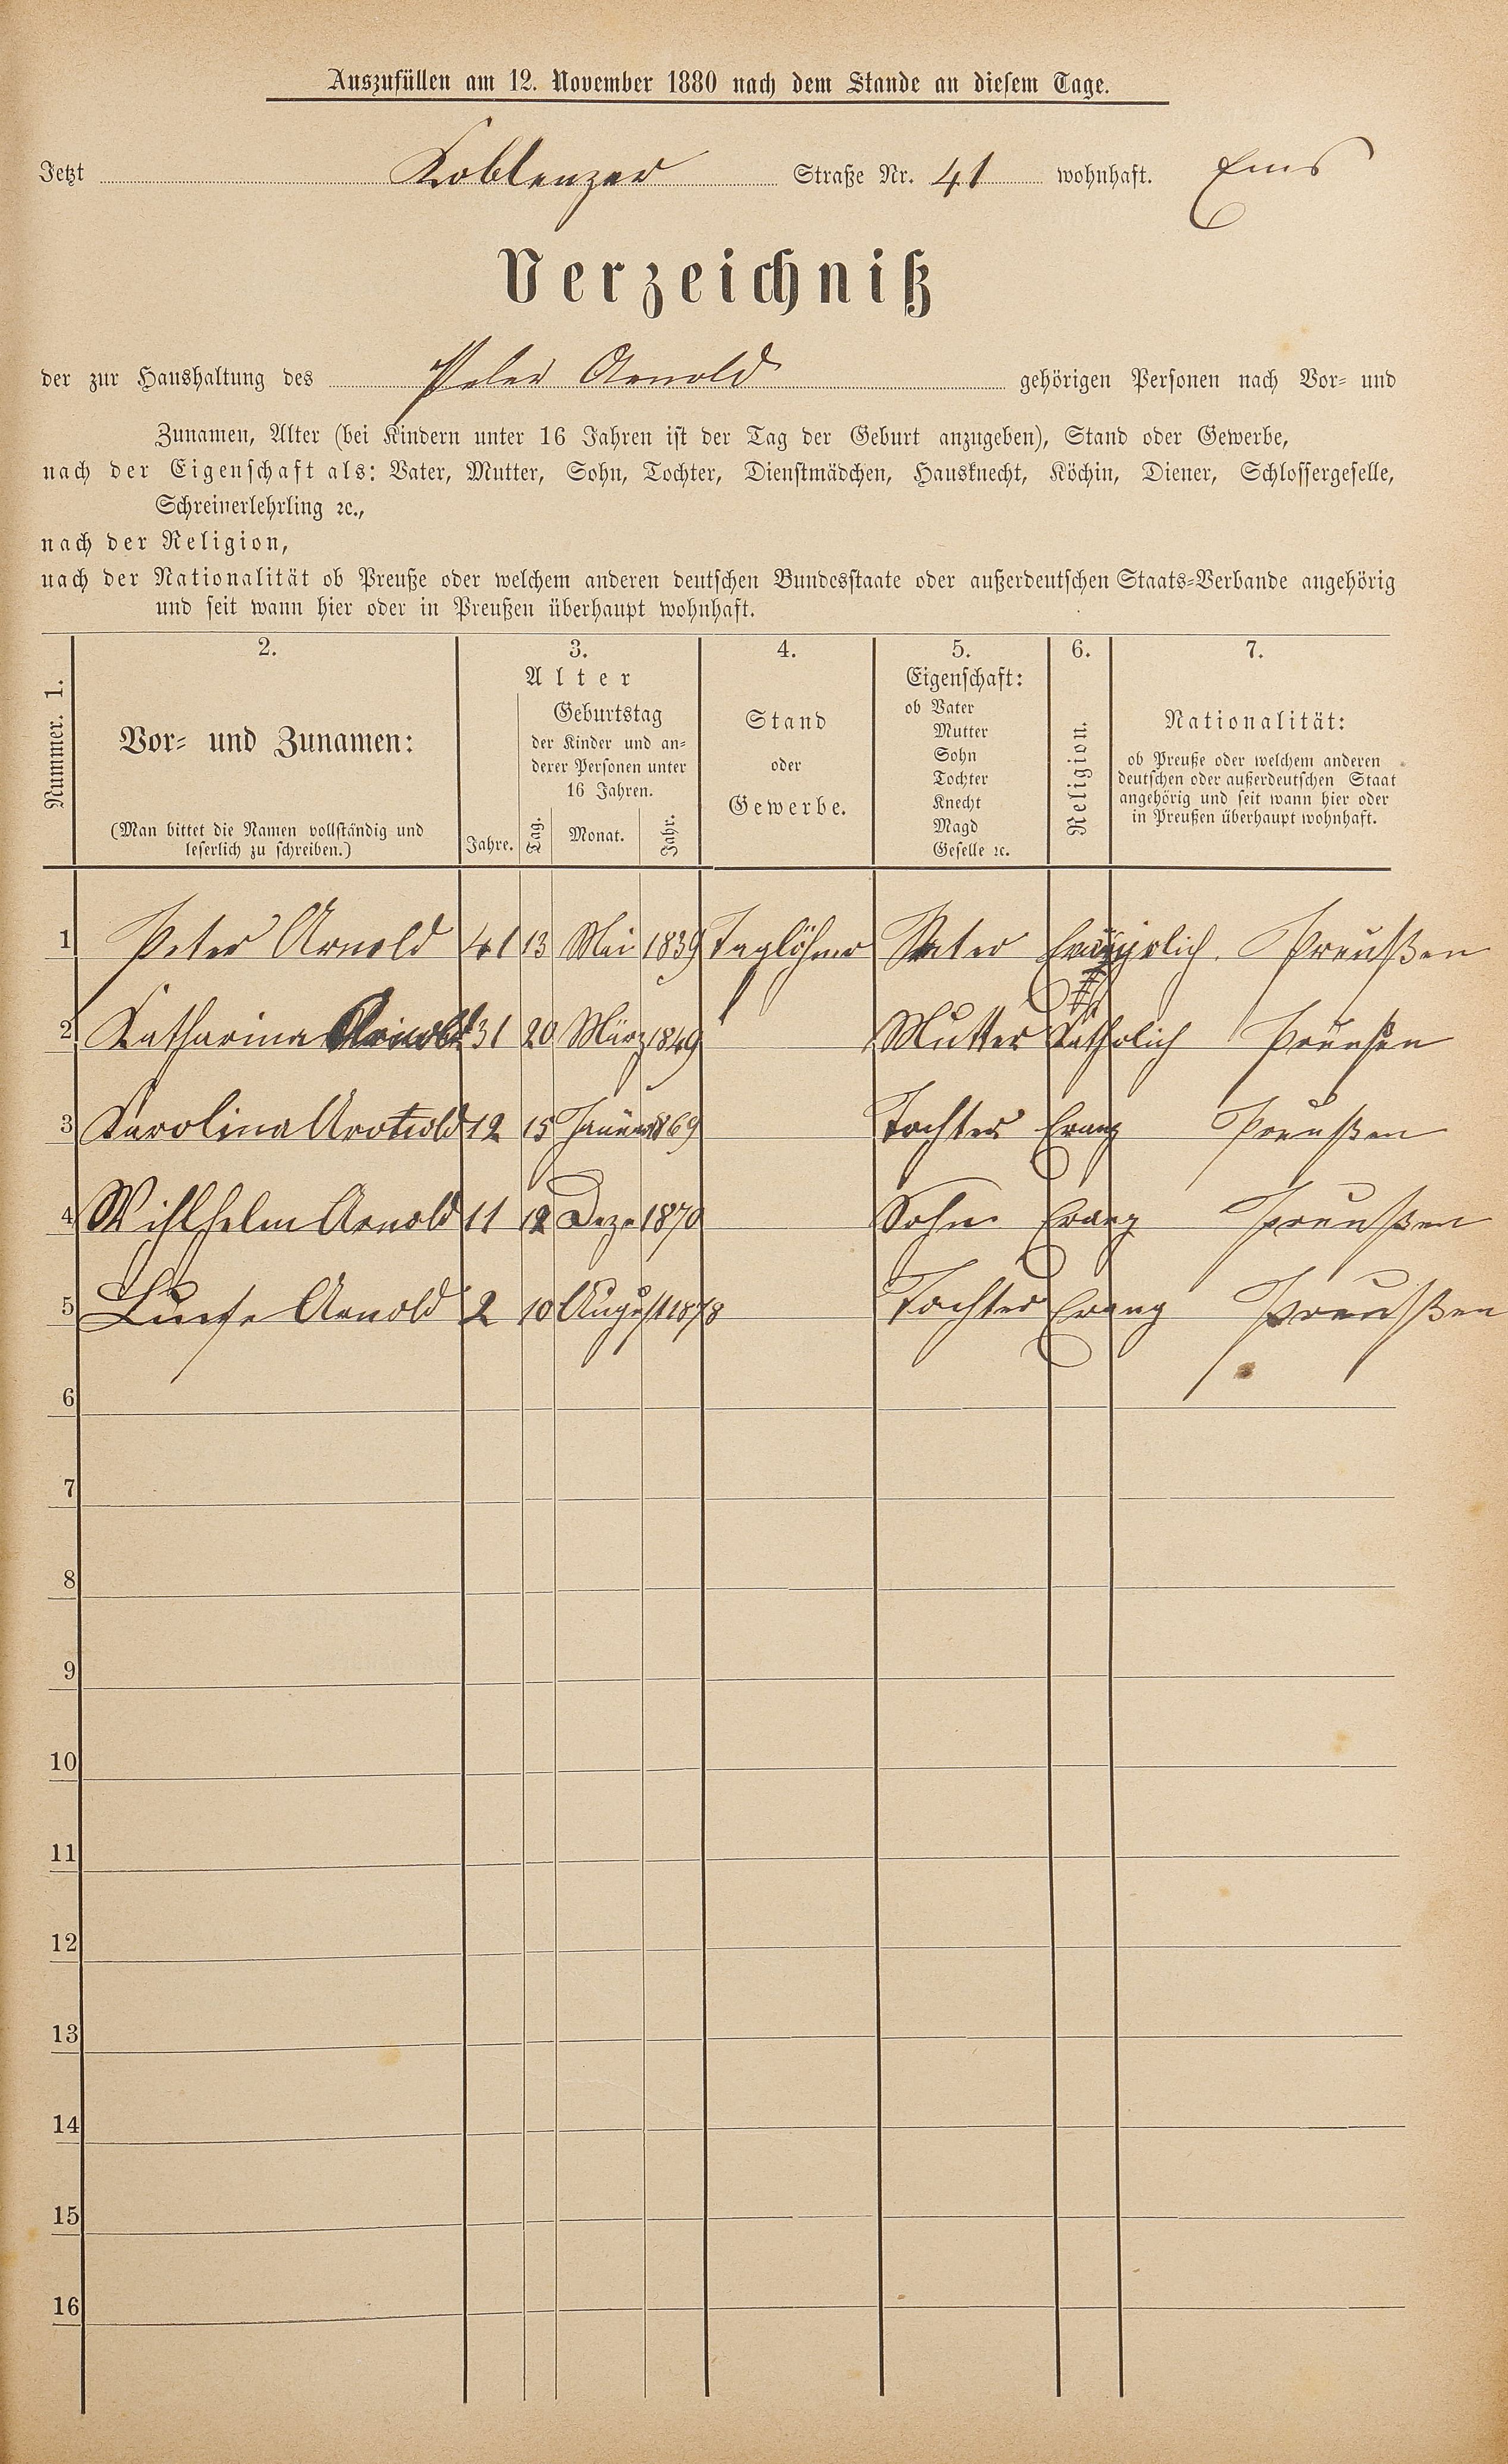 Auszufüllen am 12. November 1880 nach dem Stande an diesem Tage.
Jetzt Koblenzer Straße Nr. 41 wohnhaft. Ems
Verzeichniß
der zur Haushaltung des Peter Arnold gehörigen Personen nach Vor- und
Zunamen, Alter (bei Kindern unter 16 Jahren ist der Tag der Geburt anzugeben), Stand oder Gewerbe,
nach der Eigenschaft als: Vater, Mutter, Sohn, Tochter, Dienstmädchen, Hausknecht, Köchin, Diener, Schlossergeselle,
Schreinerlehrling ꝛc.,
nach der Religion,
nach der Nationalität ob Preuße oder welchem anderen deutschen Bundesstaate oder außerdeutschen Staats-Verbande angehörig
und seit wann hier oder in Preußen überhaupt wohnhaft.
Nummer. 1.
2.
Vor- und Zunamen:
(Man bittet die Namen vollständig und
leserlich zu schreiben.)
3.
Alter
Jahre.
Geburtstag
der Kinder und an-
derer Personen unter
16 Jahren.
Tag. Monat. Jahr.
4.
Stand
oder
Gewerbe.
5.
Eigenschaft:
ob Vater
Mutter
Sohn
Tochter
Knecht
Magd
Geselle ꝛc.
6.
Religion.
7.
Nationalität:
ob Preuße oder welchem anderen
deutschen oder außerdeutschen Staat
angehörig und seit wann hier oder
in Preußen überhaupt wohnhaft.
1 Peter Arnold 41 13 Mai 1839 Taglöhner Vater Preußen
2 Katharina Arnold 31 20 März 1849 Mutter Katholich Preußen
3 Karolina Arnold 12 15 Januar 1869 Tochter Evang Preußen
4 Wihlhelm Arnold 11 12 Deze 1870 Sohn Evang Preußen
5 Luise Arnold 2 10 August 1878 Tochter Evang Preußen
6
7
8
9
10
11
12
13
14
15
16